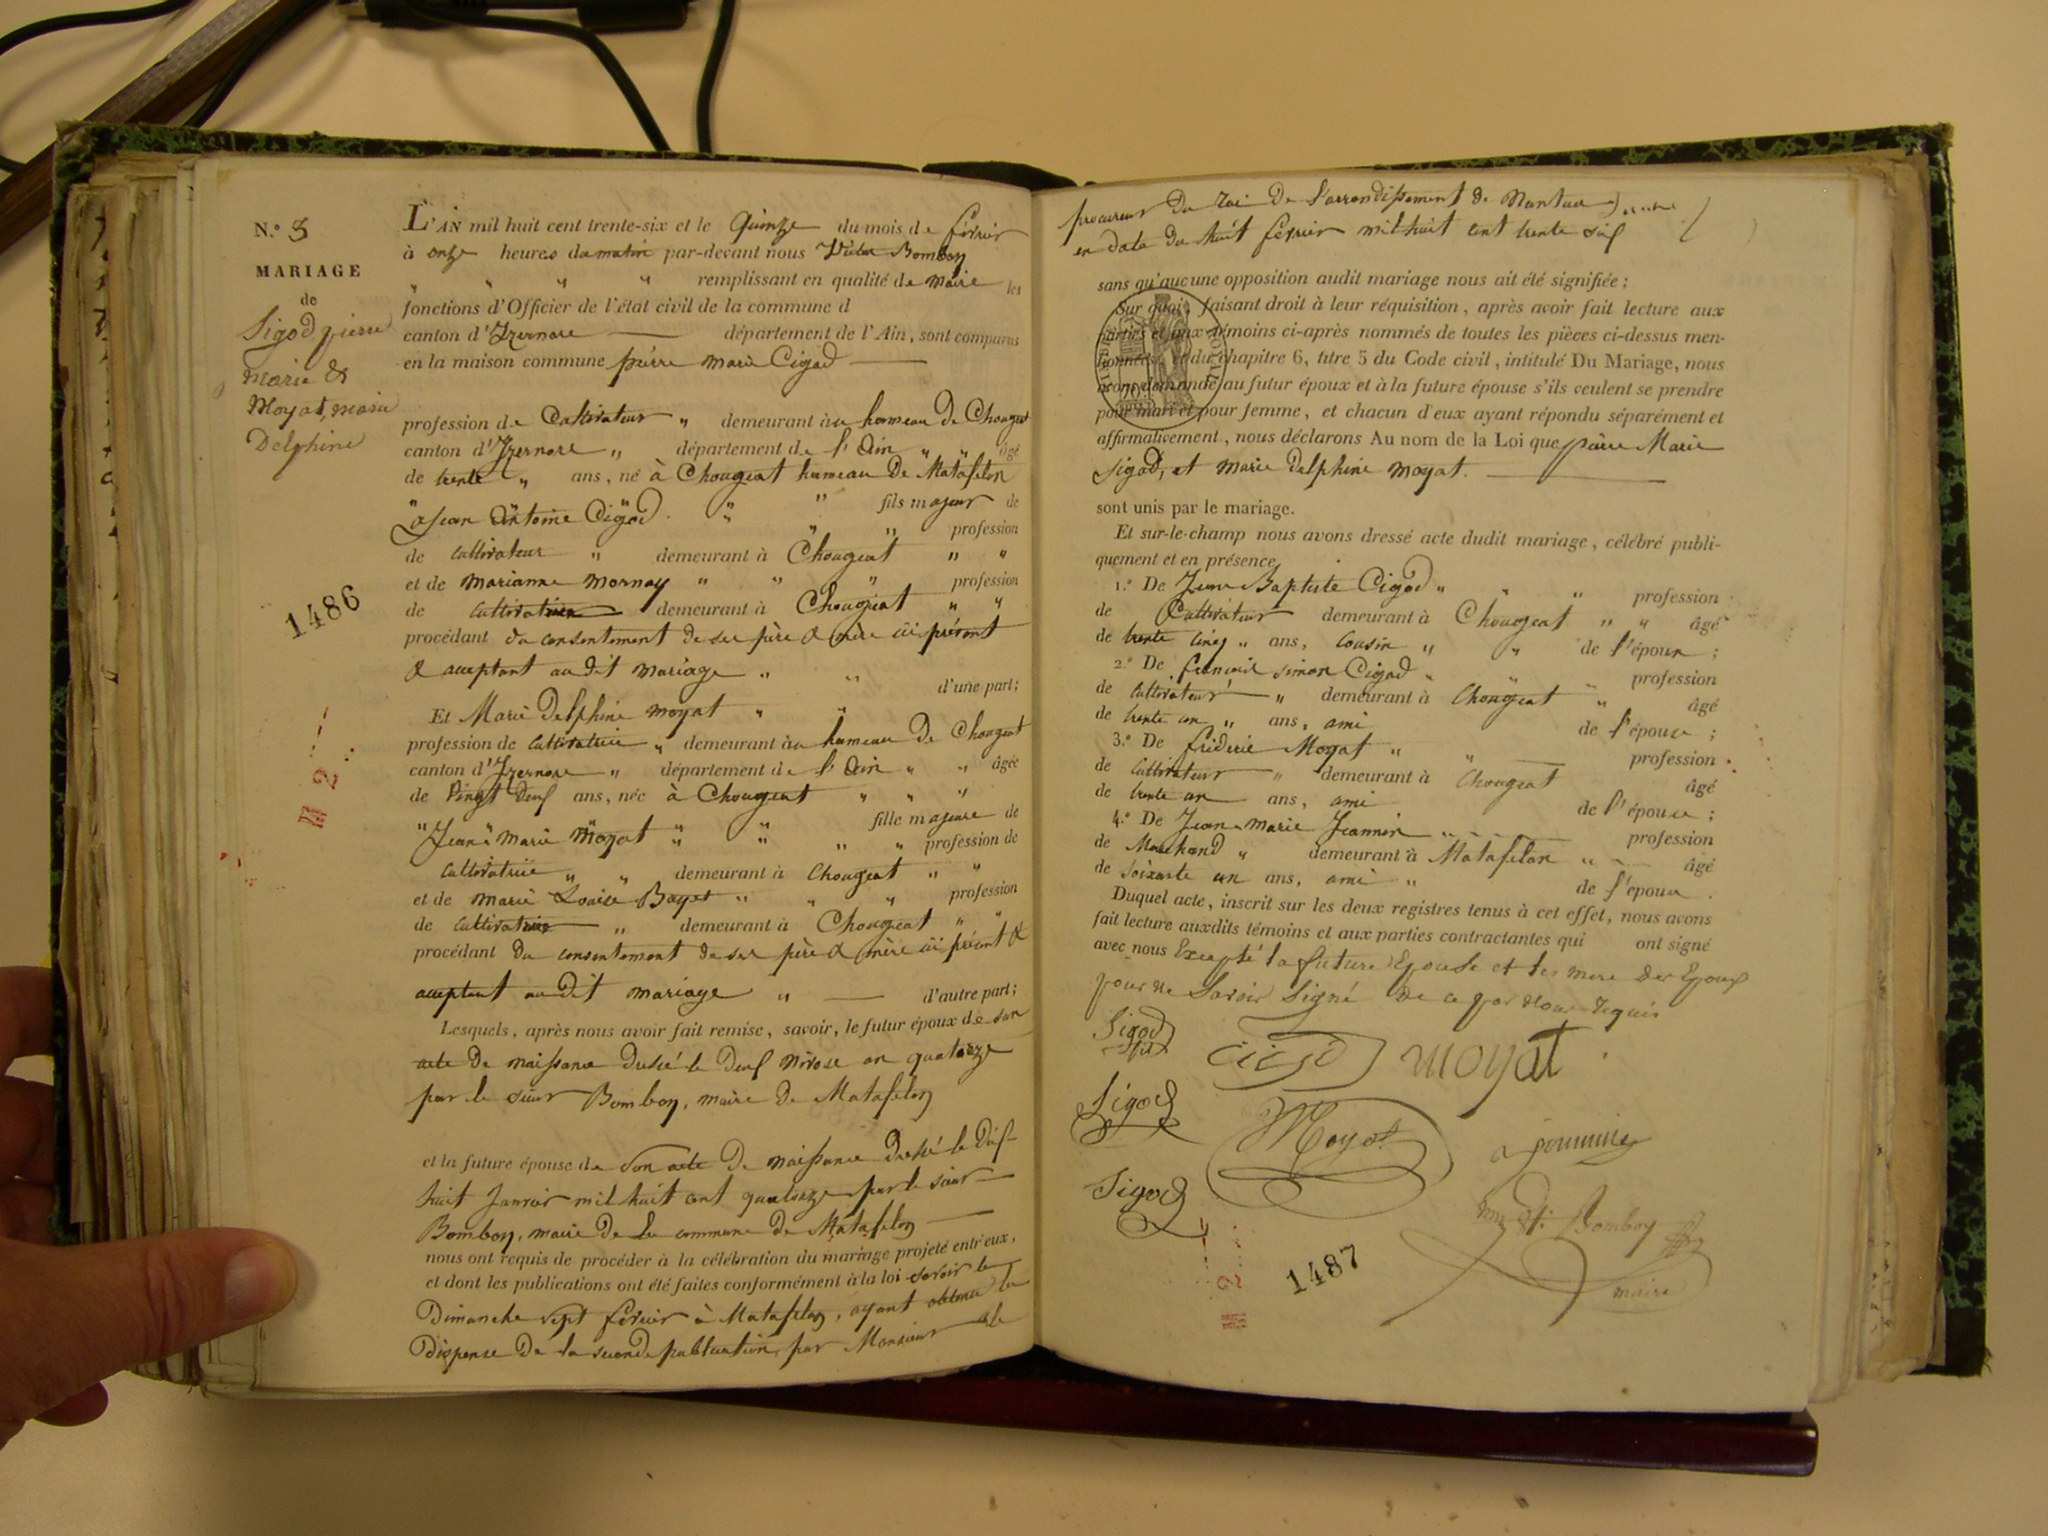 N.º 3
MARIAGE
de
Sigod pierre
marie &
Moyat, marie
Delphine
1486
L'AN mil huit cent trente-six et le Quinze du mois de février
à onze heures du matin par-devant nous Victor Bomboy
" " " " remplissant en qualité de maire les
fonctions d'Officier de l'état civil de la commune d
canton d'Izernore — département de l'Ain, sont comparus
en la maison commune pierre marie Cigod —
profession de Cultivateur " demeurant au hameau de Chougeat
canton d'Izernore " département de l'Ain " " âgé
de trente " ans, né à Chougeat hameau de Matafelon
" " " " fils majeur de
Jean Antoine Cigod " " profession
de cultivateur " demeurant à Chougeat " "
et de marianne mornay " " " profession
de cultivatrice demeurant à Chougeat " "
procédant du consentement de ses père & mère ici présent
& acceptant au dit mariage " " d'une part;
Et Marie Delphine moyat " "
profession de cultivatrice " demeurant au hameau de Chougeat
canton d'Izernore " département de l'Ain " " âgée
de vingt deux ans, née à Chougeat " " "
" " " " " fille majeure de
Jean marie Moyat " " profession de
cultivatrice " " demeurant à Chougeat " "
et de marie Louise Bayet " " " profession
de cultivatrice " demeurant à Chougeat " "
procédant du consentement de ses père & mère ici présent &
acceptant au dit mariage " — d'autre part;
Lesquels, après nous avoir fait remise, savoir, le futur époux de son
acte de naissance dressé le deux nivose an quatorze
par le sieur Bomboy, maire de Matafelon
et la future épouse de son acte de naissance dressé le dix-
huit Janvier mil huit cent quatorze par le sieur —
Bomboy, maire de la commune de Matafelon —
nous ont requis de procéder à la célébration du mariage projeté entr'eux,
et dont les publications ont été faites conformément à la loi savoir le
Dimanche sept février à Matafelon, ayant obtenu la
dispense de la seconde publication, par Monsieur le
procureur du roi de l'arrondissement de Nantua
en date du huit février mil huit cent trente six
sans qu'aucune opposition audit mariage nous ait été signifiée;
Sur quoi, faisant droit à leur réquisition, après avoir fait lecture aux
parties et aux témoins ci-après nommés de toutes les pièces ci-dessus men-
tionnées, et du chapitre 6, titre 5 du Code civil, intitulé Du Mariage, nous
avons demandé au futur époux et à la future épouse s'ils veulent se prendre
pour mari et pour femme, et chacun d'eux ayant répondu séparément et
affirmativement, nous déclarons Au nom de la Loi que pierre Marie
Sigod, et marie delphine moyat. —
sont unis par le mariage.
Et sur-le-champ nous avons dressé acte dudit mariage, célébré publi-
quement et en présence
1.º De Jean Baptiste Cigod " " " profession
de Cultivateur demeurant à Chougeat " " âgé
de trente cinq " ans, cousin " " de l'époux;
2.º De francois simon Cigod " " profession
de cultivateur " demeurant à Chougeat " âgé
de trente un " ans, ami de l'épouse;
3.º De fréderic Moyat " " profession
de cultivateur " demeurant à Chougeat âgé
de trente un ans, ami de l'épouse;
4.º De Jean-marie Jeannin " profession
de Marchand " demeurant à Matafelon " — âgé
de soixante un ans, ami " de l'époux.
Duquel acte, inscrit sur les deux registres tenus à cet effet, nous avons
fait lecture auxdits témoins et aux parties contractantes qui ont signé
avec nous Excepté la future Epouse et les mere des Epoux
pour ne Savoir Signé de ce par Nous requis
Sigod
fils
cigod moyat
Sigod
Moyat
Sigod
Bomboy
maire
1487